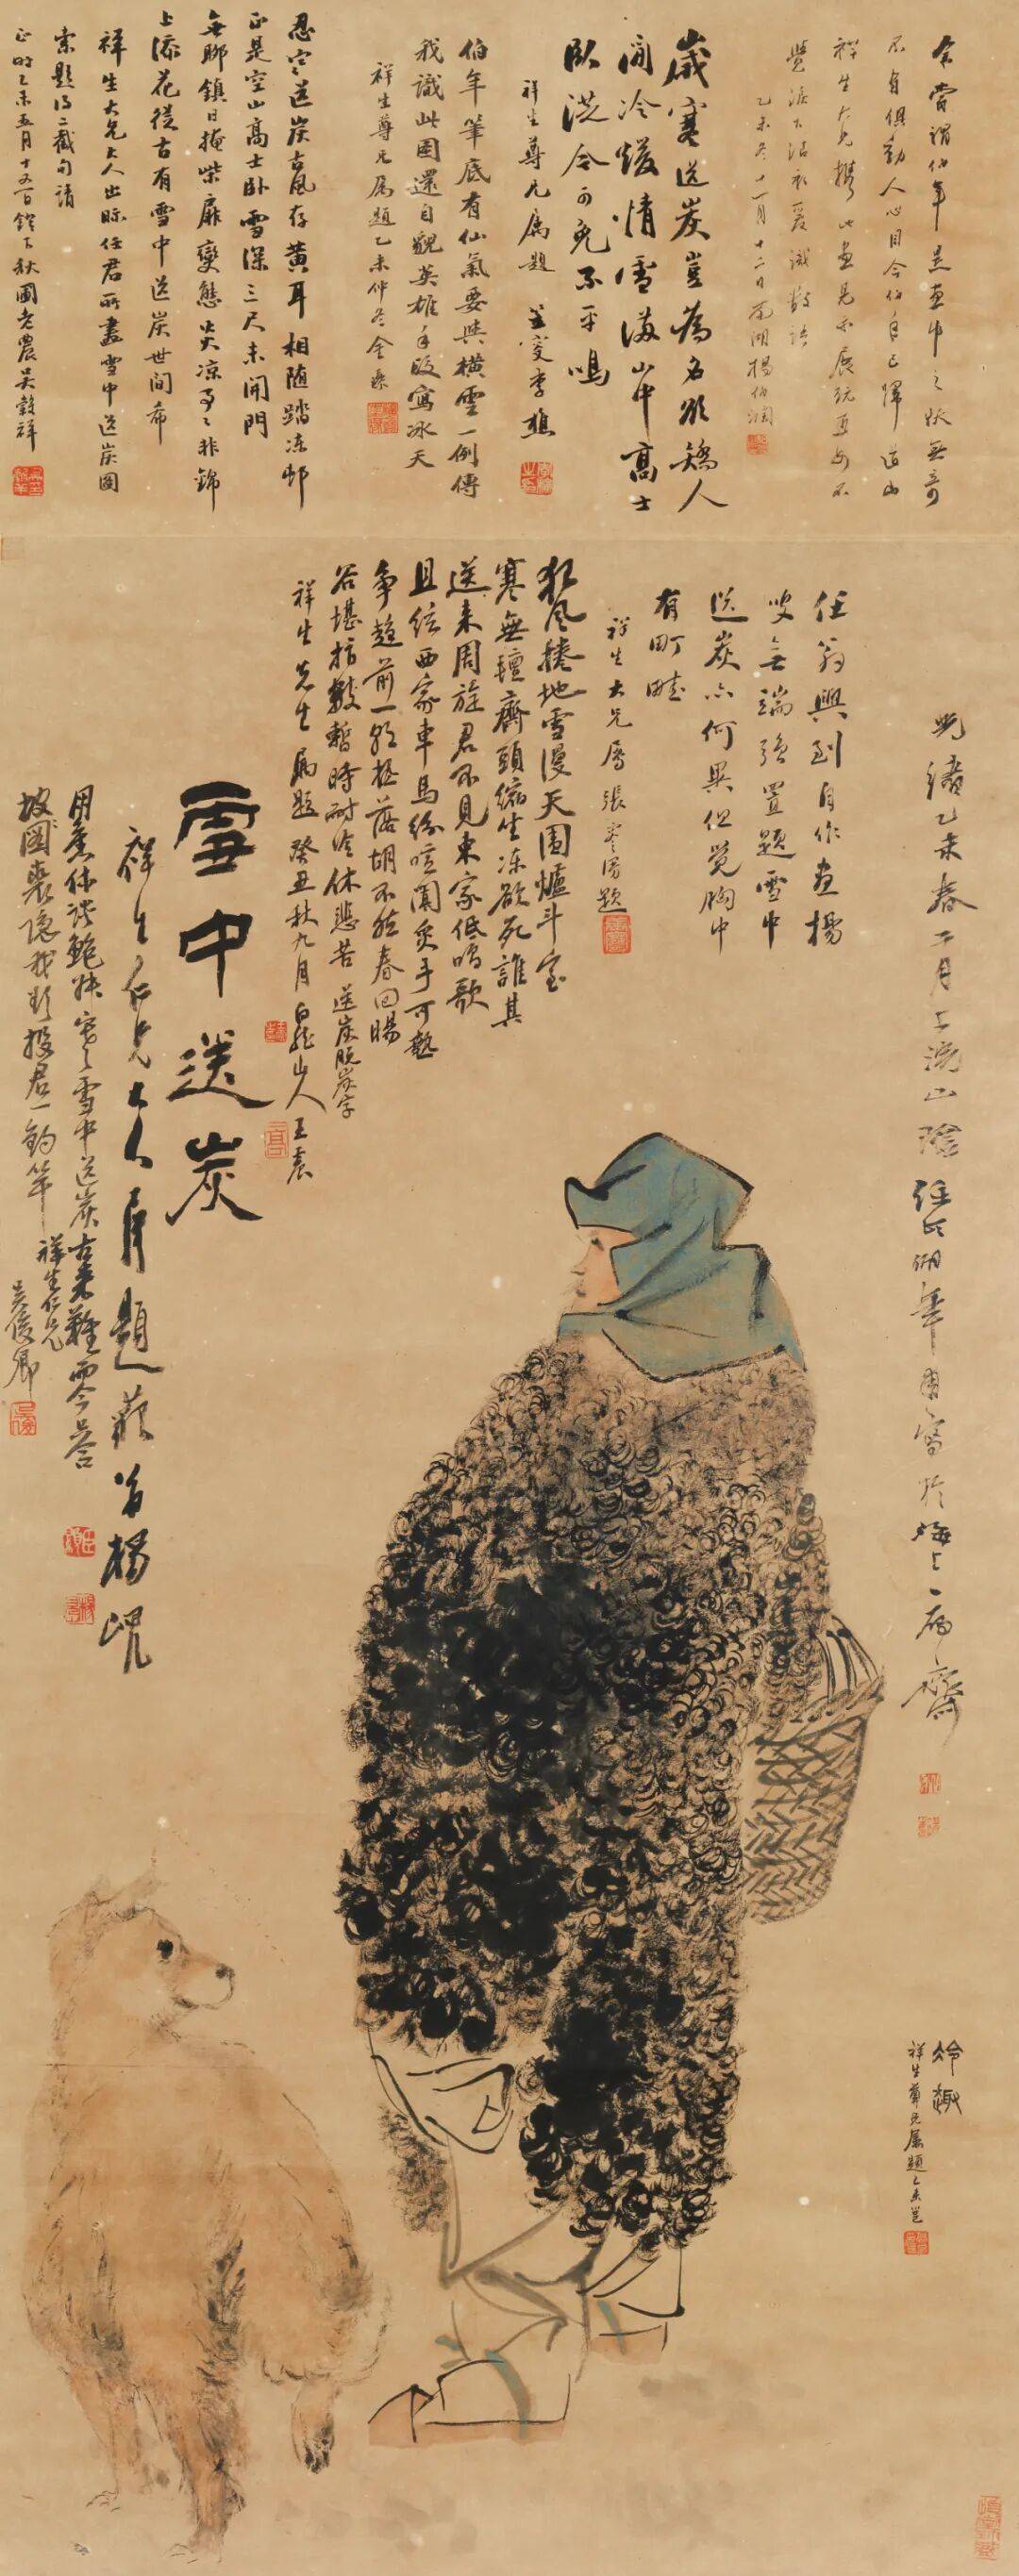 余嘗謂伯年是畫中之妖無奇
不自俱動人心目今伯年已歸道山
祥生大兄攜此畫見示展玩再四不
覺淚下沾衣爰識數語
乙未冬十一月十二日南湖楊伯潤
歲寒送炭豈爲名欲矯人
間冷煖情雪滿山中高士
臥洗令可免不平鳴
祥生尊兄属題
伯年筆底有仙氣要與橫雲一例傳
我識此圖還自覬英雄手段寫冰天
祥生尊兄属題乙未仲冬
忍寒送炭古風存黃耳相隨踏凍邨
正是空山高士卧雪深三尺未開門
無聊鎮日掩柴扉變態炎涼事事非錦
上添花從古有雪中送炭世間希
祥生大兄大人出眎任君所畫雪中送炭圖
索題得二截句請
正時乙未五月十五日鐙下秋圃老農吴穀祥
光緒乙未春二月上浣山陰任頤伯年甫寫於海上一病齋
任翁興到自作畫楊
叟無端強置題雪中
送炭亦何異但覺胸中
有町畦
祥生大兄屬 張 題
狂風捲地雪漫天圍爐斗室
寒無氈齊頭縮坐凍欲死誰其
送來周旋君不見東家低唱歌
且絃西家車馬紛喧闐炙手可熱
爭趨前一朝搖落胡不然春回暘
谷堪指數暫時耐冷休悲苦 送炭脫炭字
祥生先生属題 癸丑秋九月白龍山人王震
雪中送炭
祥生仁兄大人属題藐翁楊峴
雪中送炭古來難
投君一釣竿
祥生仁兄
吴俊卿
冷趣
祥生尊兄屬題乙未